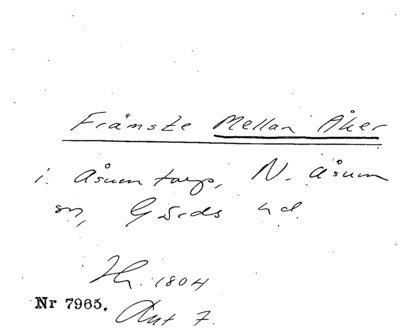 Främste Mellan Åker
i Åsumtorp, N. Åsum
sn, Gärds hd.
Hr. 1804
Nr 7965. Akt 7.